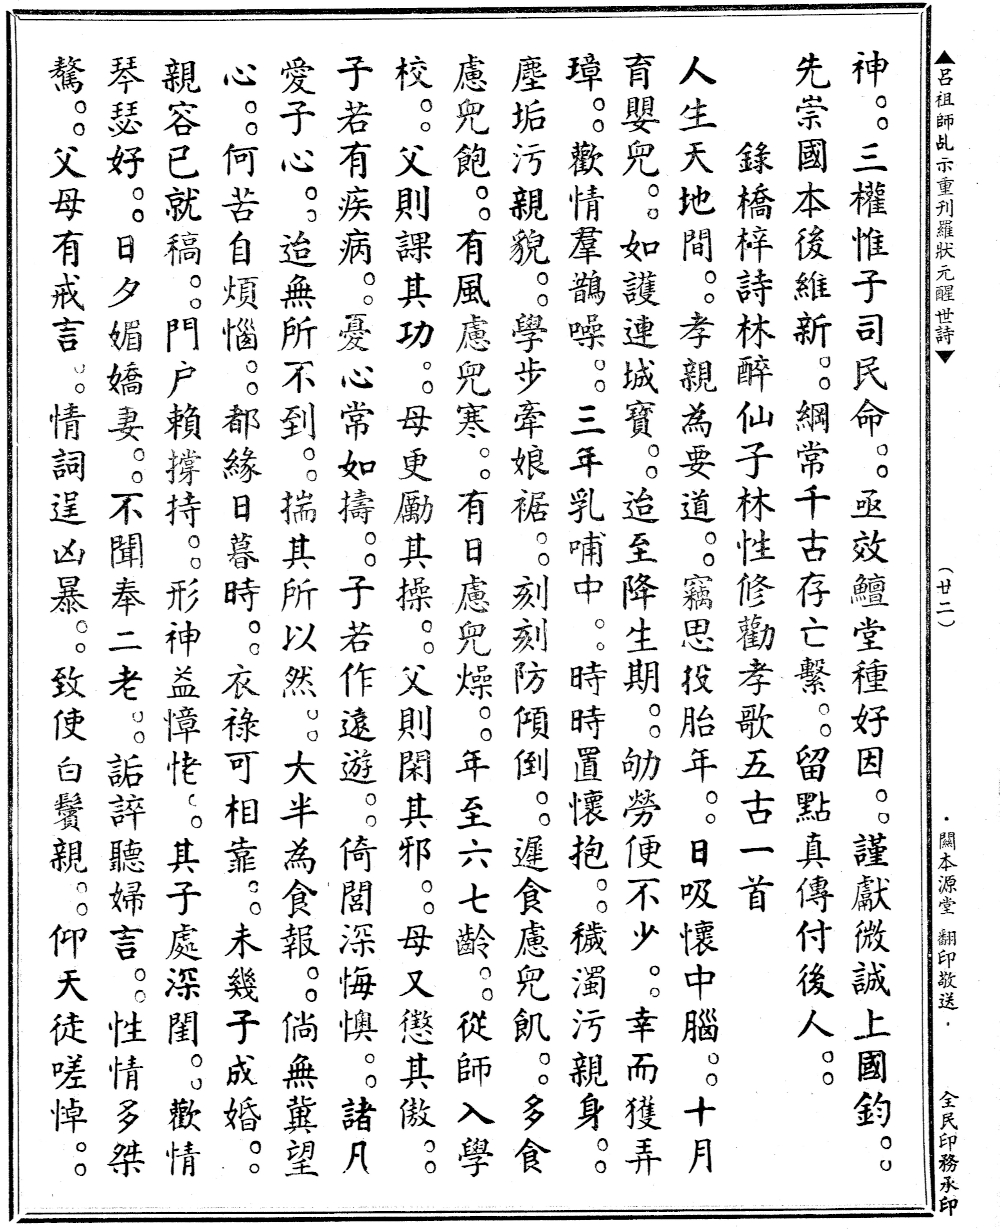 ▲呂祖師乩示重刊羅狀元醒世詩▼
（廿二）
·關本源堂 翻印敬送·
全民印務承印
神。。三權惟子司民命。。亟效鱣堂種好因。。謹獻微誠上國鈞。。
先崇國本後維新。。綱常千古存亡繫。。留點真傳付後人。。
錄橋梓詩林醉仙子林性修勸孝歌五古一首
人生天地間。。孝親為要道。。竊思投胎年。。日吸懷中腦。。十月
育嬰兒。。如護連城寶。。迨至降生期。。劬勞便不少。。幸而獲弄
璋。。歡情羣鵲噪。。三年乳哺中。。時時置懷抱。。穢濁污親身。。
塵垢污親貌。。學步牽娘裾。。刻刻防傾倒。。遲食慮兒飢。。多食
慮兒飽。。有風慮兒寒。。有日慮兒燥。。年至六七齡。。從師入學
校。。父則課其功。。母更勵其操。。父則閑其邪。。母又懲其傲。。
子若有疾病。。憂心常如擣。。子若作遠遊。。倚閭深悔懊。。諸凡
愛子心。。迨無所不到。。揣其所以然。。大半為食報。。倘無冀望
心。。何苦自煩惱。。都緣日暮時。。衣祿可相靠。。未幾子成婚。。
親容已就稿。。門户賴撐持。。形神益慞恅。。其子處深閨。。歡情
琴瑟好。。日夕媚嬌妻。。不聞奉二老。。詬誶聽婦言。。性情多桀
驁。。父母有戒言。。情詞逞凶暴。。致使白鬢親。。仰天徒嗟悼。。